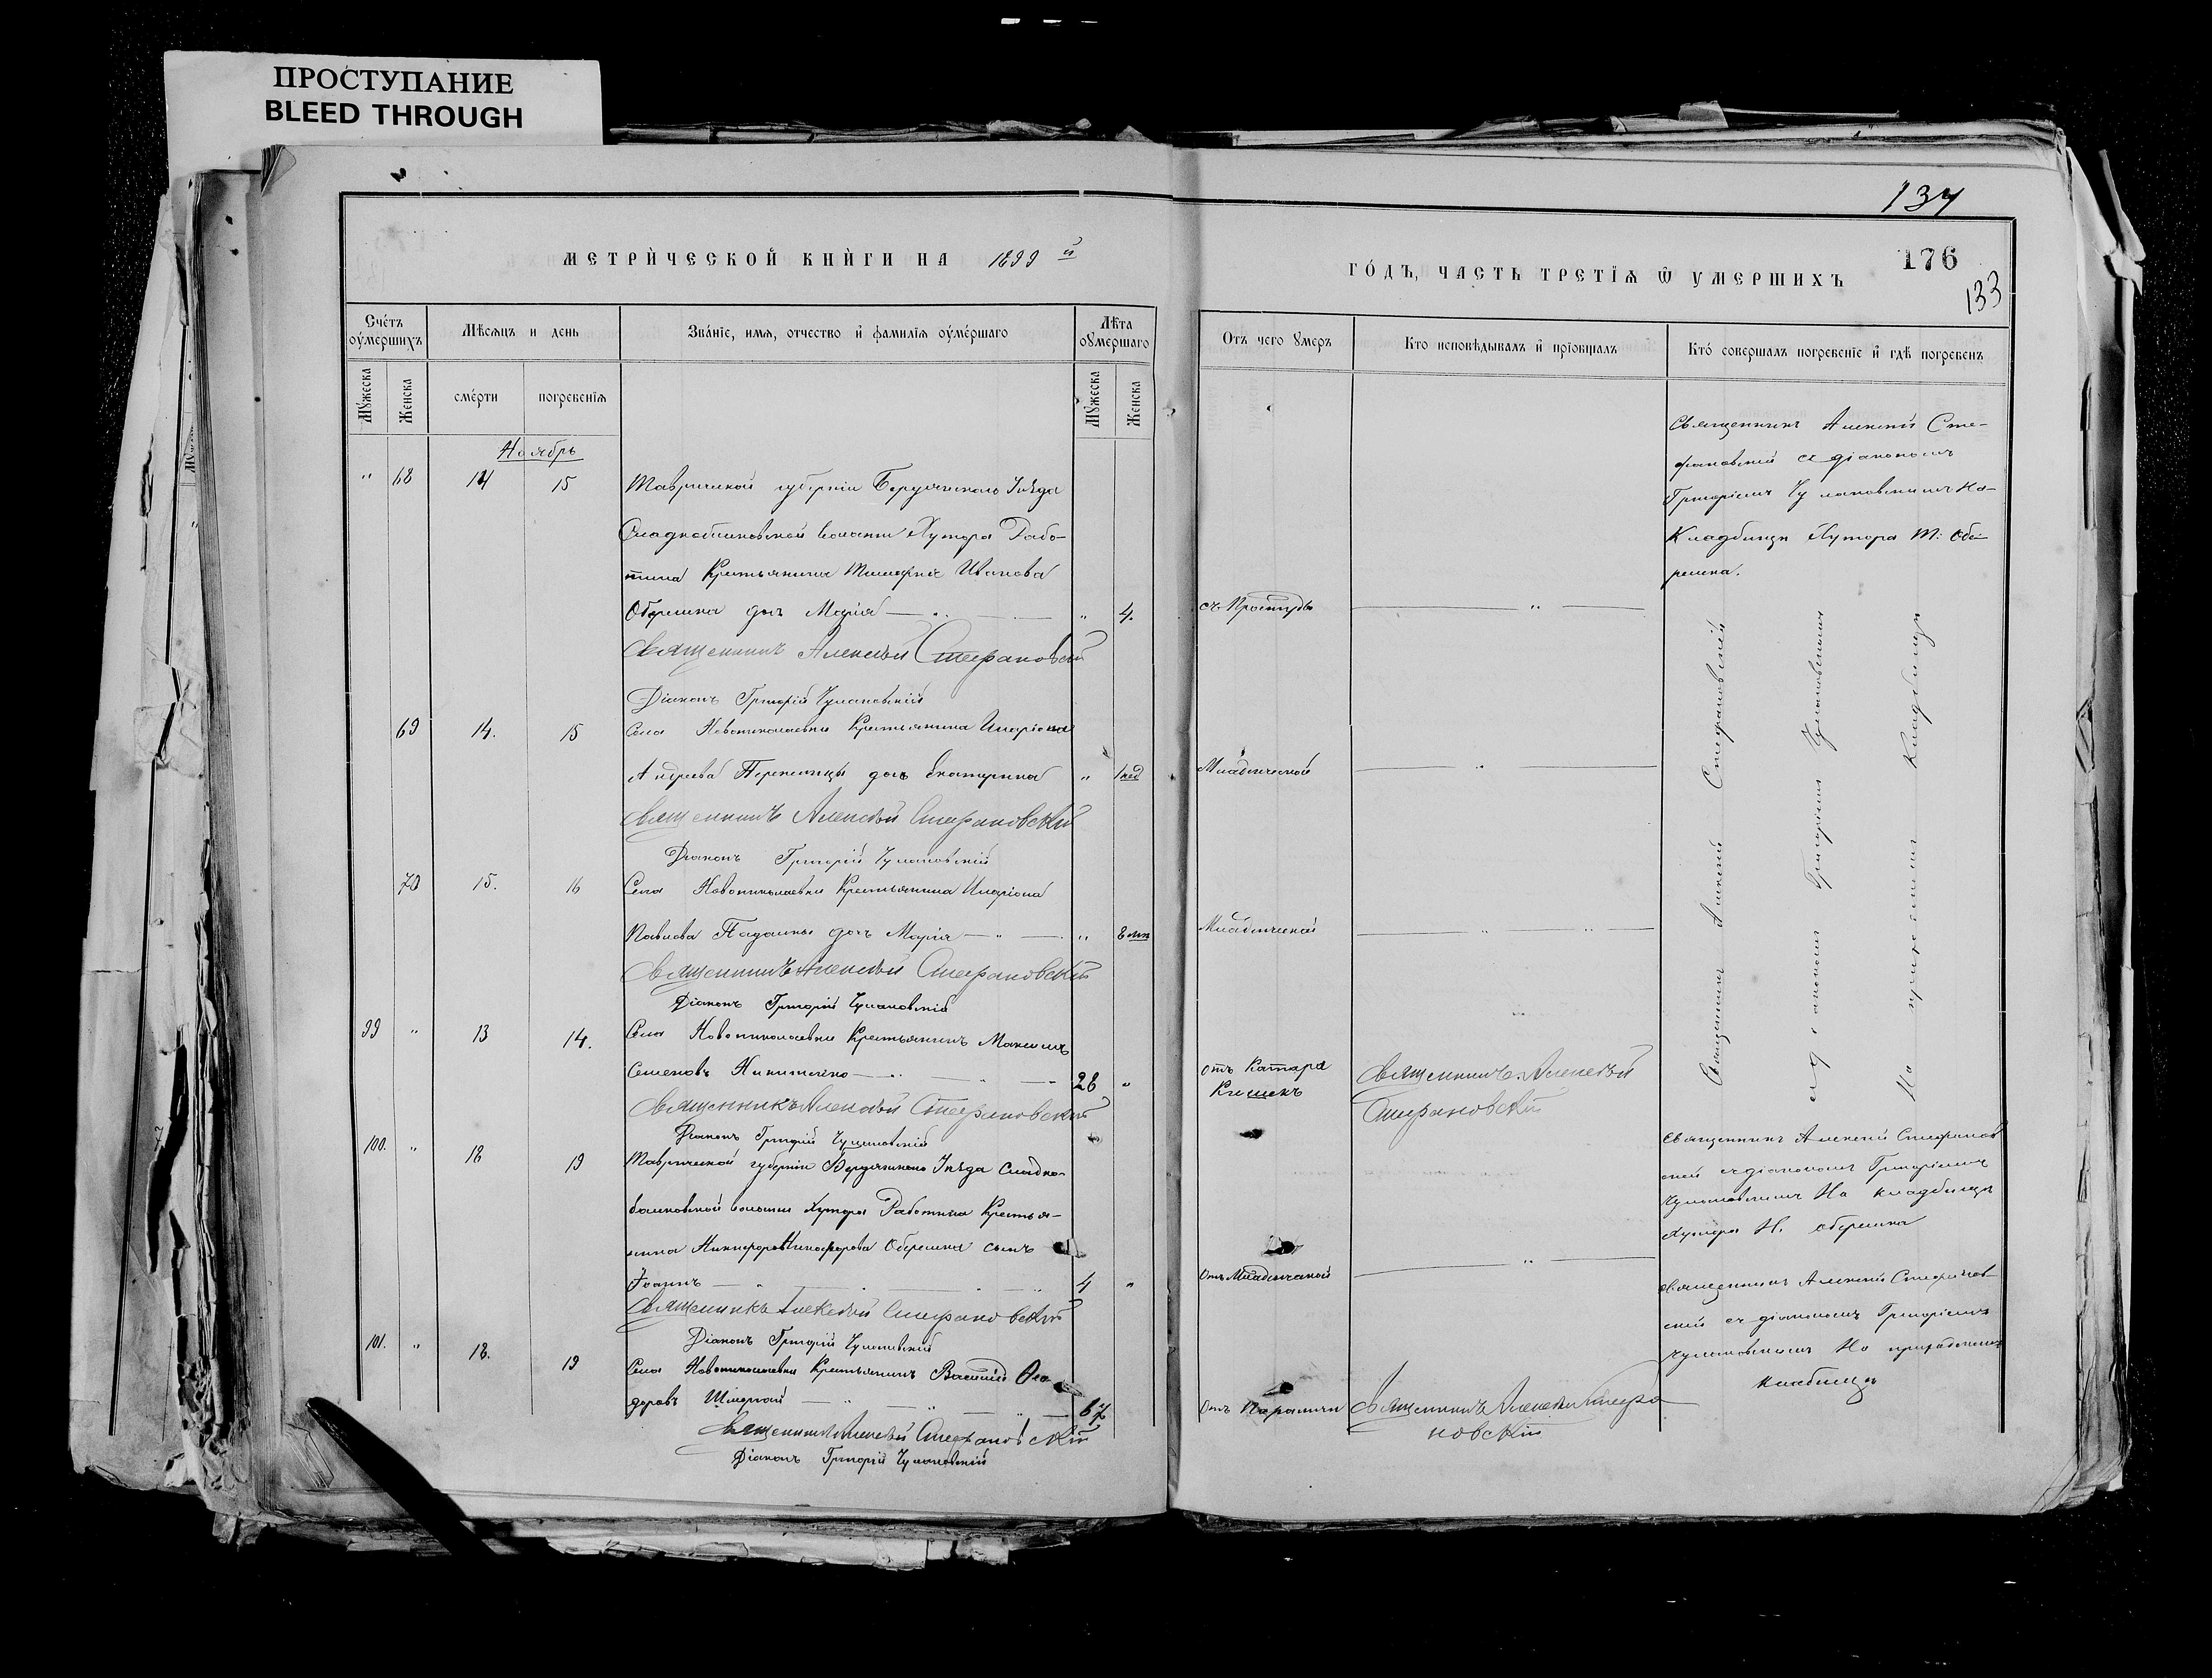 ПРОСТУПАНИЕ
BLEED THROUGH
134
176
133
МЕТРИЧЕСКОЙ КНИГИ НА 1899 й
ГОДЪ, ЧАСТЬ ТРЕТІЯ Ѿ УМЕРШИХЪ
Счетъ оумершихъ
Мѣсяцъ и день
Званіе, имя, отчество и фамилія оумершаго
Лѣта оумершаго
Отъ чего умеръ
Кто исповѣдывалъ и пріобщалъ
Кто совершалъ погребеніе и гдѣ погребенъ
Мужеска
Женска
смерти
погребенія
Мужеска
Женска
Ноябрь
" 68 14 15 Таврической губерніи Бердянскаго Уѣзда
волости Хутора Рабо-
тина Крестьянина Тимофея Иванова
Оберемка дочь Марія " 4. съ Простуды
Священникъ Алексѣй Стефановскій
Діаконъ Григорій Чулановскій
Священникъ Алексѣй Сте-
фановскій съ діакономъ
Григоріемъ Чулановскимъ на
Кладбищѣ Хутора Т: Обе-
ремка.
69 14. 15 Села Новониколаевки Крестьянина Иларіона
Андреева Перепелицы дочь Екатерина " 1 нед Младенческой
Священникъ Алексѣй Стефановскій
Діаконъ Григорій Чулановскій
70 15. 16 Села Новониколаевки Крестьянина Иларіона
Павлова дочь Марія " 8 мѣс Младенческой
Священникъ Алексѣй Стефановскій
Діаконъ Григорій Чулановскій
99 " 13 14. Села Новониколаевки Крестьянинъ Максимъ
Семеновъ Никитенко 28 " отъ Катара
Кишекъ
Священникъ Алексѣй
Стефановскій
Священникъ Алексѣй Стефановскій
Діаконъ Григорій Чулановскій
Священникъ Алексѣй Стефановскій
съ діакономъ Григоріемъ Чулановскимъ
На приходскомъ Кладбищѣ
100. " 18 19 Таврической губерніи Бердянскаго Уѣзда Сладко-
балковской волости Хутора Работина Крестья-
нина Никифора Никифорова Оберемка сынъ
Іоаннъ 4 " Отъ Младенческой
Священникъ Алексѣй Стефановскій
Діаконъ Григорій Чулановскій
Священникъ Алексѣй Стефанов
скій съ діакономъ Григоріемъ
Чулановскимъ На кладбищѣ
Хутора Н. Оберемка
101. " 18. 19 Села Новониколаевки Крестьянинъ Василій Ѳео-
доровъ 67 Отъ Параличи
Священникъ Алексѣй Стефа
новскій
Священникъ Алексѣй Стефановскій
Діаконъ Григорій Чулановскій
Священникъ Алексѣй Стефанов-
скій съ діакономъ Григоріемъ
Чулановскимъ На приходскомъ
кладбищѣ